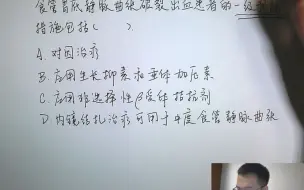 食管胃底静脉曲张破裂出血患者的一级预防
措施包括( )。
A. 对因治疗
B. 应用生长抑素和垂体加压素
C. 应用非选择性β受体拮抗剂
D. 内镜结扎治疗可用于中度食管静脉曲张